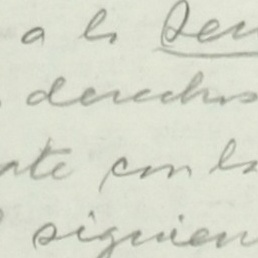 a la Sen
derechos
ate con la
siguien